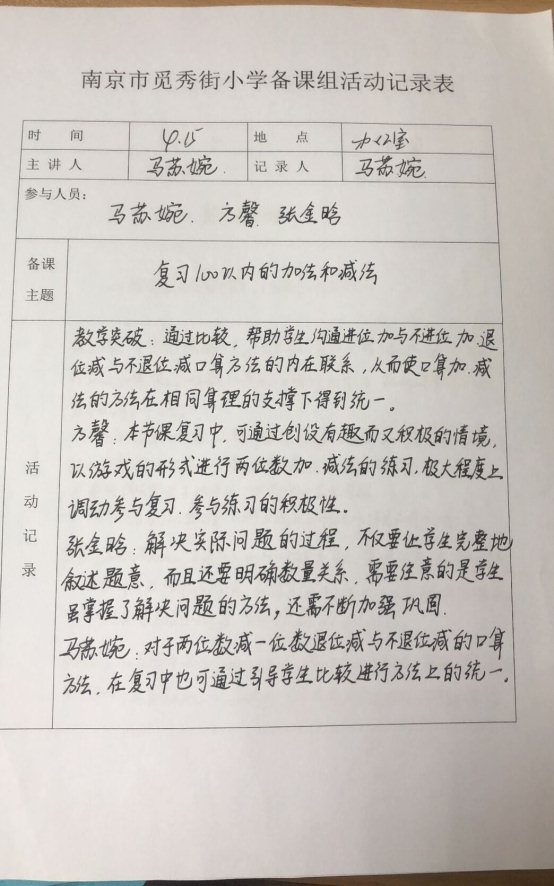 南京市觅秀街小学备课组活动记录表
时 间 4.15 地 点 办公室
主讲人 马苏婉. 记录人 马苏婉.
参与人员:
马苏婉. 方馨. 张金晗
备课主题 复习100以内的加法和减法
活动记录
教学突破:通过比较,帮助学生沟通进位加与不进位加.退
位减与不退位减口算方法的内在联系,从而使口算加.减
法的方法在相同算理的支撑下得到统一。
方馨:本节课复习中,可通过创设有趣而又积极的情境,
以游戏的形式进行两位数加.减法的练习,极大程度上
调动参与复习.参与练习的积极性。
张金晗:解决实际问题的过程,不仅要让学生完整地
叙述题意,而且还要明确数量关系,需要注意的是学生
虽掌握了解决问题的方法,还需不断加强巩固.
马苏婉:对于两位数减一位数退位减与不退位减的口算
方法,在复习中也可通过引导学生比较进行方法上的统一。